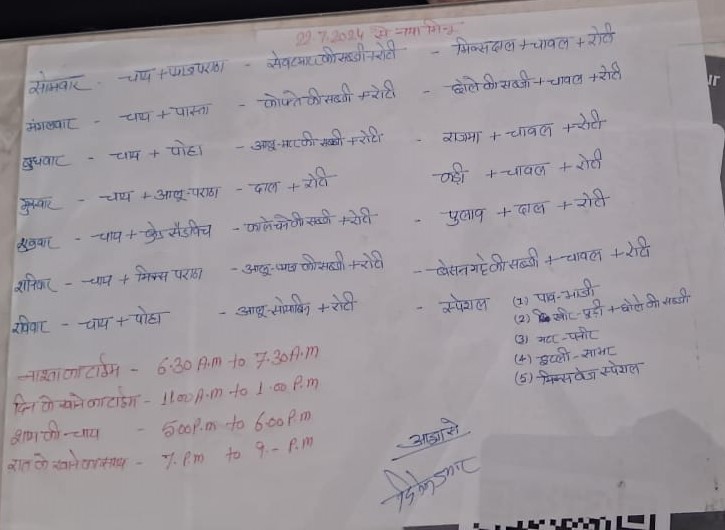 22.7.2024 से नया
सोमवार - चाय + प्याज पराठा - सेवटमाटर की सब्जी + रोटी - मिक्स दाल + चावल + रोटी
मंगलवार - चाय + पास्ता - कोफ्ते की सब्जी + रोटी - छोले की सब्जी + चावल + रोटी
बुधवार - चाय + पोहा - आलू-मटर की सब्जी + रोटी - राजमा + चावल + रोटी
गुरुवार - चाय + आलू-पराठा - दाल + रोटी कढ़ी + चावल + रोटी
शुक्रवार - चाय + ब्रेड सैंडविच - काले चने की सब्जी + रोटी - पुलाव + दाल + रोटी
शनिवार - चाय + मिक्स पराठा - आलू-प्याज की सब्जी + रोटी - बेसन गट्टे की सब्जी + चावल + रोटी
रविवार - चाय + पोहा - आलू-सोयाबीन + रोटी - स्पेशल (1) पाव-भाजी
(2) खीर-पूड़ी + छोले की सब्जी
(3) मटर-पनीर
(4) इडली-साम्भर
(5) मिक्स वेज स्पेशल
नाश्ता का टाईम - 6:30 A.m to 7.30 A.m
दिन के खाने का टाईम - 11.00 A.m to 1.00 P.m
शाम की-चाय - 5:00 P.m to 6:00 P.m
रात के खाने का समय - 7. P.m to 9.- P.m
आज्ञा से